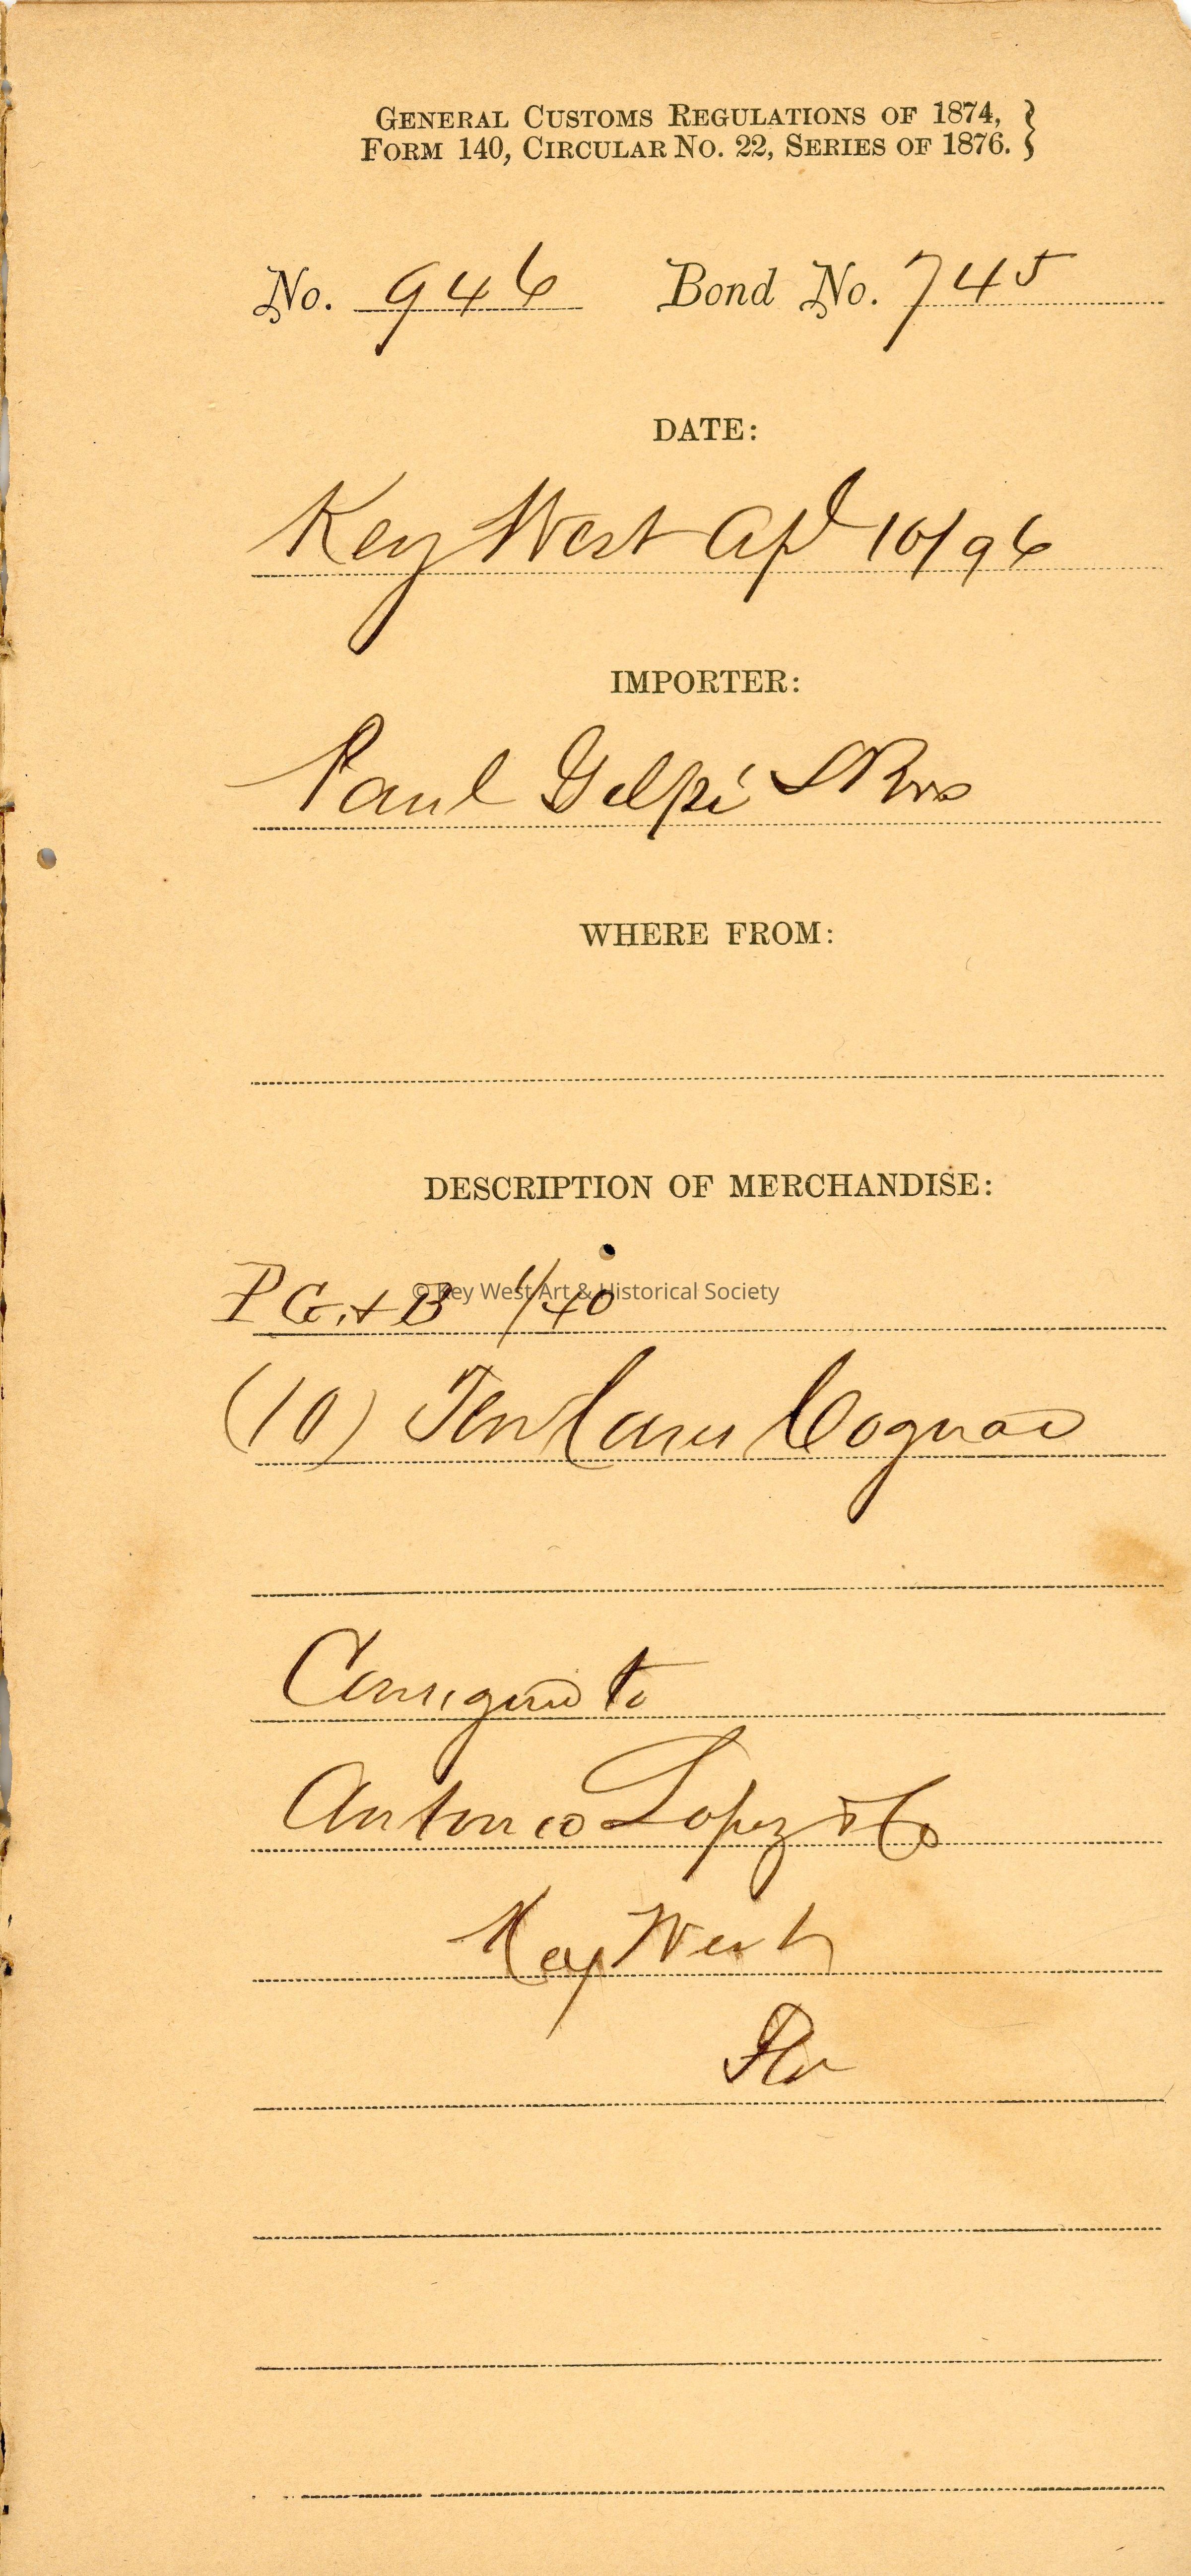 GENERAL CUSTOMS REGULATIONS OF 1874,
FORM 140, CIRCULAR NO. 22, SERIES OF 1876.
No. 946 Bond No. 745
DATE:
Key West Apl 10/96
IMPORTER:
Paul Gelpi & Bros
WHERE FROM:
DESCRIPTION OF MERCHANDISE:
P G. & B 1/10
© Key West Art & Historical Society
(10) Ten Cases Cognac
Consigned to
Antonio Lopez & Co
Key West
Fla